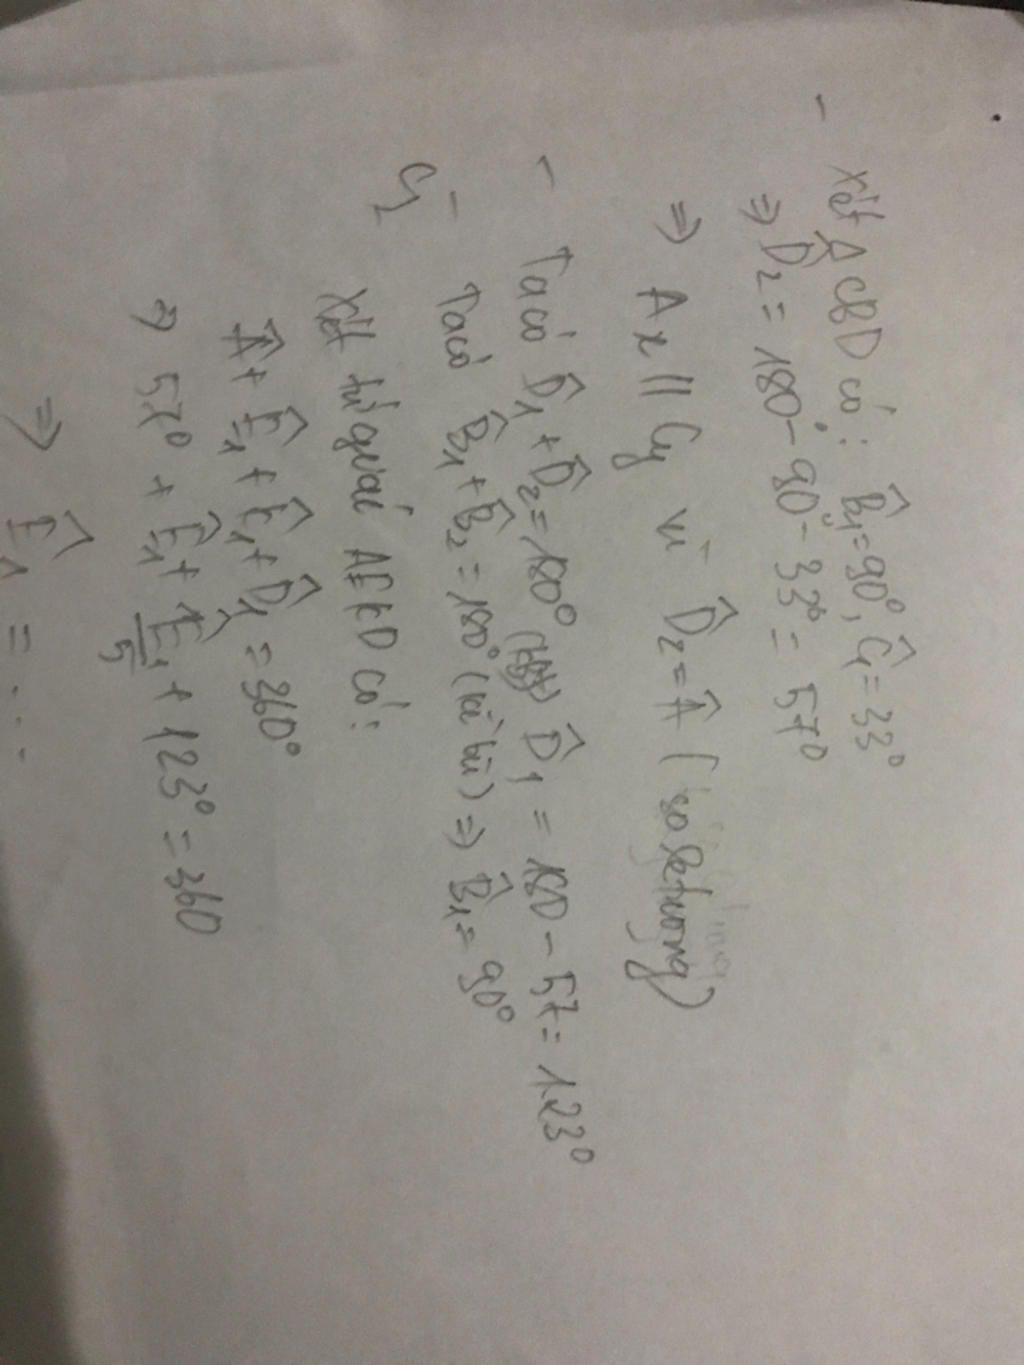 - Xét Δ CBD có: B̂₁=90°, Ĉ₁=33°
⇒ D̂₂ = 180° - 90° - 33° = 57°
⇒ Ax // Cy vì D̂₂ = Â (so le trong)
- Ta có D̂₁ + D̂₂ = 180° D̂₁ = 180 - 57 = 123°
- Ta có B̂₁ + B̂₂ = 180° (kề bù) ⇒ B̂₁ = 90°
Xét tứ giác AEKD có:
 + Ê₁ + K̂₁ + D̂₁ = 360°
⇒ 57° + Ê₁ + Ê₁/5 + 123° = 360
⇒ Ê₁ = ...